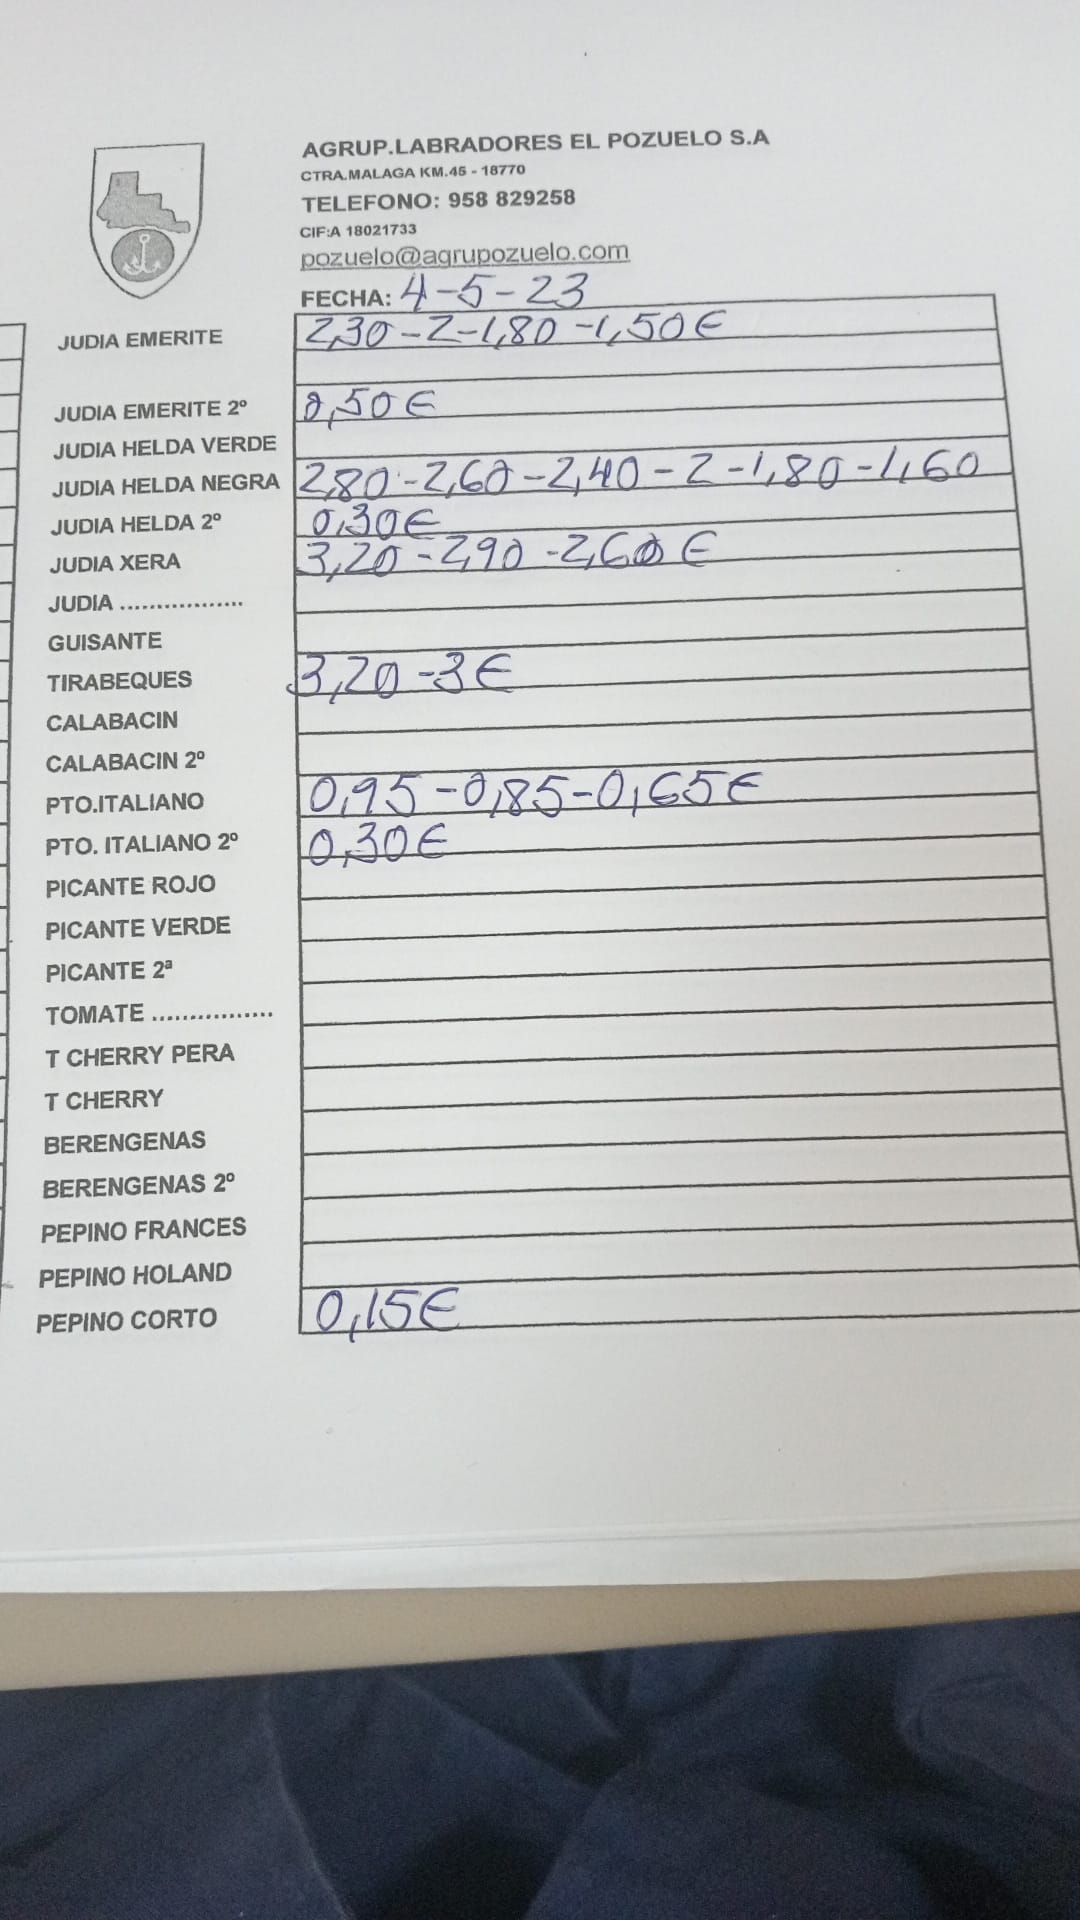 AGRUP.LABRADORES EL POZUELO S.A
CTRA.MALAGA KM.45 - 18770
TELEFONO: 958 829258
CIF:A 18021733
pozuelo@agrupozuelo.com
FECHA: 4-5-23
JUDIA EMERITE 2,30-2-1,80-1,50€
JUDIA EMERITE 2º 0,50€
JUDIA HELDA VERDE
JUDIA HELDA NEGRA 2,80-2,60-2,40-2-1,80-1,60
JUDIA HELDA 2º 0,30€
JUDIA XERA 3,20-2,90-2,60€
JUDIA .................
GUISANTE
TIRABEQUES 3,20-3€
CALABACIN
CALABACIN 2º
PTO.ITALIANO 0,95-0,85-0,65€
PTO. ITALIANO 2º 0,30€
PICANTE ROJO
PICANTE VERDE
PICANTE 2ª
TOMATE ................
T CHERRY PERA
T CHERRY
BERENGENAS
BERENGENAS 2º
PEPINO FRANCES
PEPINO HOLAND
PEPINO CORTO 0,15€